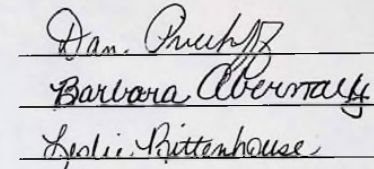 Dan.
Barbara Abernathy
Leslie Rittenhouse